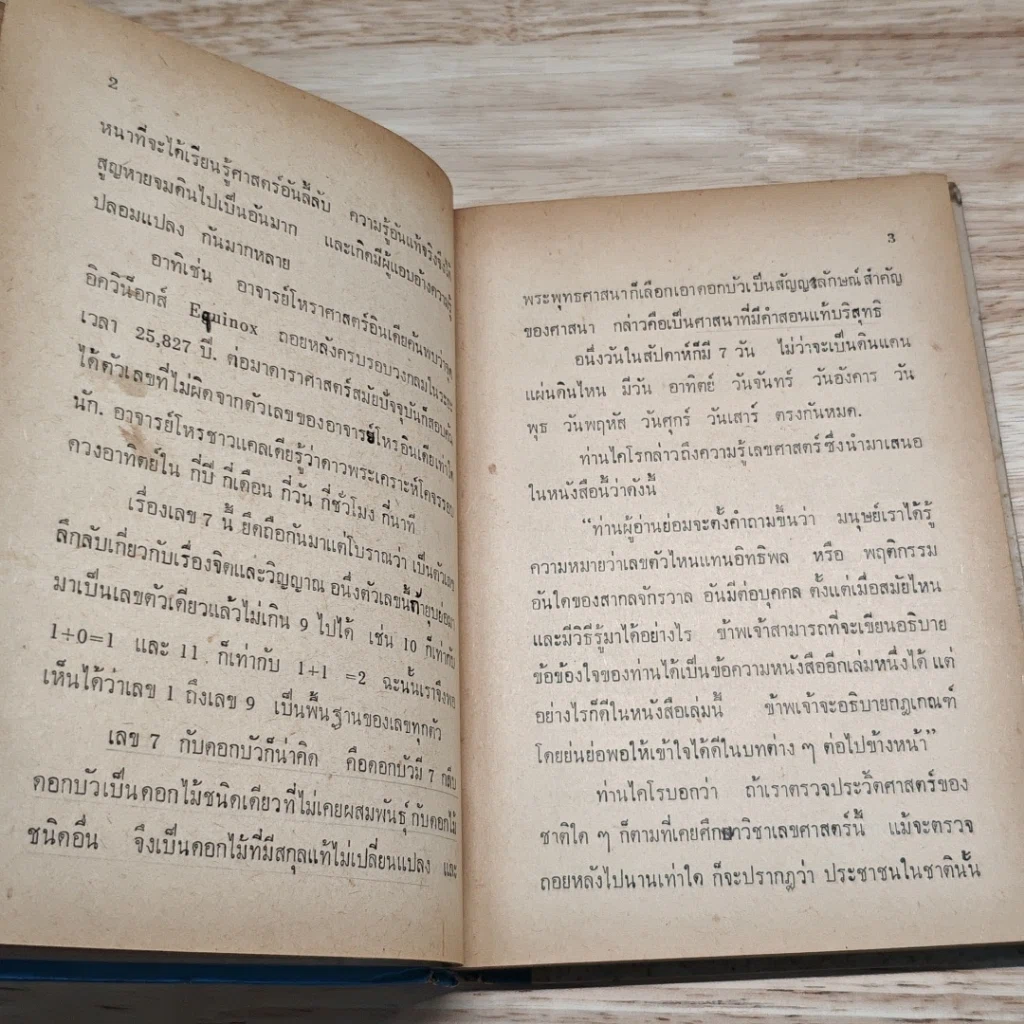 2
หนาที่จะได้เรียนรู้ศาสตร์อันลี้ลับ ความรู้อันแท้จริงจึงได้
สูญหายจมดินไปเป็นอันมาก และเกิดมีผู้แอบอ้างความรู้
ปลอมแปลง กันมากหลาย
อาทิเช่น อาจารย์โหราศาสตร์อินเดียค้นพบว่าจุด
อิควิน็อกส์ Equinox ถอยหลังครบรอบวงกลมในระยะ
เวลา 25,827 ปี. ต่อมาดาราศาสตร์สมัยปัจจุบันก็สอบค้น
ได้ตัวเลขที่ไม่ผิดจากตัวเลขของอาจารย์โหรอินเดียเท่าใด
นัก. อาจารย์โหรชาวแคลเดียรู้ว่าดาวพระเคราะห์โคจรรอบ
ดวงอาทิตย์ใน กี่ปี กี่เดือน กี่วัน กี่ชั่วโมง กี่นาที
เรื่องเลข 7 นี้ ยึดถือกันมาแต่โบราณว่า เป็นตัวเลข
ลึกลับเกี่ยวกับเรื่องจิตและวิญญาณ อนึ่งตัวเลขนี้ถ้ายุบย่อลง
มาเป็นเลขตัวเดียวแล้วไม่เกิน 9 ไปได้ เช่น 10 ก็เท่ากับ
1+0=1 และ 11 ก็เท่ากับ 1+1 =2 ฉะนั้นเราจึงพอ
เห็นได้ว่าเลข 1 ถึงเลข 9 เป็นพื้นฐานของเลขทุกตัว
เลข 7 กับดอกบัวก็น่าคิด คือดอกบัวมี 7 กลีบ
ดอกบัวเป็นดอกไม้ชนิดเดียวที่ไม่เคยผสมพันธุ์กับดอกไม้
ชนิดอื่น จึงเป็นดอกไม้ที่มีสกุลแท้ไม่เปลี่ยนแปลง และ
3
พระพุทธศาสนาก็เลือกเอาดอกบัวเป็นสัญญลักษณ์สำคัญ
ของศาสนา กล่าวคือเป็นศาสนาที่มีคำสอนแท้บริสุทธิ
อนึ่งวันในสัปดาห์ก็มี 7 วัน ไม่ว่าจะเป็นดินแดน
แผ่นดินไหน มีวัน อาทิตย์ วันจันทร์ วันอังคาร วัน
พุธ วันพฤหัส วันศุกร์ วันเสาร์ ตรงกันหมด.
ท่านไคโรกล่าวถึงความรู้เลขศาสตร์ซึ่งนำมาเสนอ
ในหนังสือนี้ว่าดังนี้
“ท่านผู้อ่านย่อมจะตั้งคำถามขึ้นว่า มนุษย์เราได้รู้
ความหมายว่าเลขตัวไหนแทนอิทธิพล หรือ พฤติกรรม
อันใดของสากลจักรวาล อันมีต่อบุคคล ตั้งแต่เมื่อสมัยไหน
และมีวิธีรู้มาได้อย่างไร ข้าพเจ้าสามารถที่จะเขียนอธิบาย
ข้อข้องใจของท่านได้เป็นข้อความหนังสืออีกเล่มหนึ่งได้ แต่
อย่างไรก็ดีในหนังสือเล่มนี้ ข้าพเจ้าจะอธิบายกฎเกณฑ์
โดยย่นย่อพอให้เข้าใจได้ดีในบทต่าง ๆ ต่อไปข้างหน้า”
ท่านไคโรบอกว่า ถ้าเราตรวจประวัติศาสตร์ของ
ชาติใด ๆ ก็ตามที่เคยศึกษาวิชาเลขศาสตร์นี้ แม้จะตรวจ
ถอยหลังไปนานเท่าใด ก็จะปรากฏว่า ประชาชนในชาตินั้น